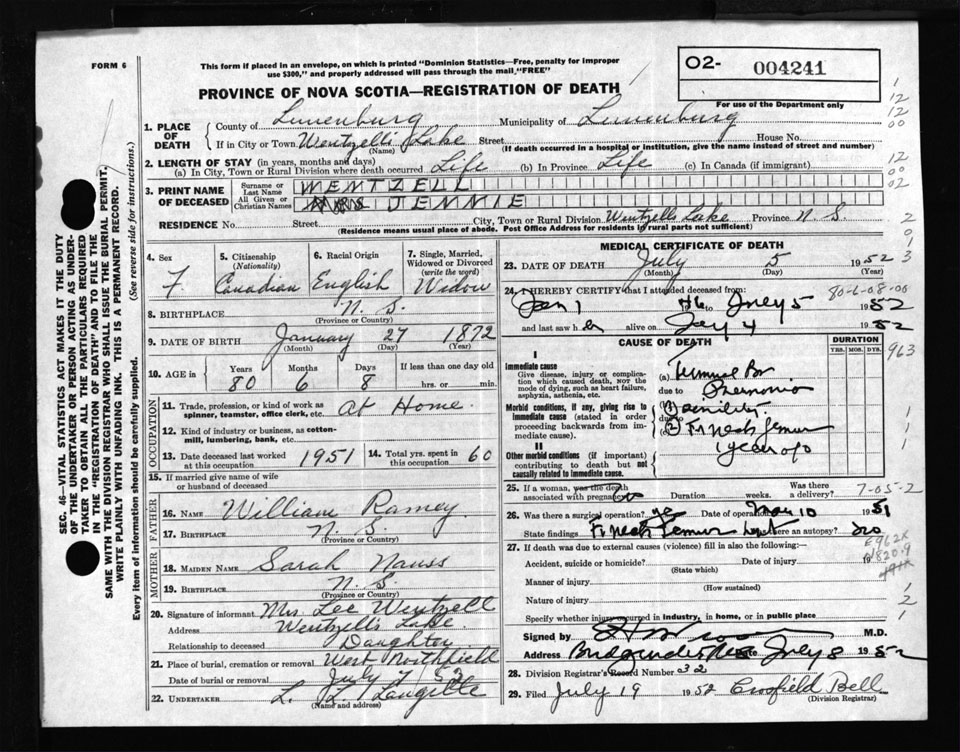 FORM 6
This form if placed in an envelope, on which is printed "Dominion Statistics—Free, penalty for improper
use $300," and properly addressed will pass through the mail "FREE"
PROVINCE OF NOVA SCOTIA—REGISTRATION OF DEATH
O2- 004241
For use of the Department only
1. PLACE OF DEATH
County of Lunenburg Municipality of Lunenburg
If in City or Town Wentzells Lake Street House No.
(Name) (If death occurred in a hospital or institution, give the name instead of street and number)
2. LENGTH OF STAY (in years, months and days)
(a) In City, Town or Rural Division where death occurred Life (b) In Province Life (c) In Canada (if immigrant)
3. PRINT NAME OF DECEASED
Surname or Last Name WENTZELL
All Given or Christian Names MRS JENNIE
RESIDENCE No. Street City, Town or Rural Division Wentzells Lake Province N. S.
(Residence means usual place of abode. Post Office Address for residents in rural parts not sufficient)
4. Sex F.
5. Citizenship (Nationality) Canadian
6. Racial Origin English
7. Single, Married, Widowed or Divorced (write the word) Widow
8. BIRTHPLACE N. S.
(Province or Country)
9. DATE OF BIRTH January 27 1872
(Month) (Day) (Year)
10. AGE in Years Months Days If less than one day old
80 6 8 hrs. or min.
OCCUPATION
11. Trade, profession, or kind of work as spinner, teamster, office clerk, etc. at Home.
12. Kind of industry or business, as cotton-mill, lumbering, bank, etc.
13. Date deceased last worked at this occupation 1951
14. Total yrs. spent in this occupation 60
15. If married give name of wife or husband of deceased
FATHER
16. NAME William Ramey.
17. BIRTHPLACE N. S.
(Province or Country)
MOTHER
18. MAIDEN NAME Sarah Nauss
19. BIRTHPLACE N. S.
(Province or Country)
20. Signature of informant Mrs Lee Wentzell
Address Wentzells Lake.
Relationship to deceased Daughter
21. Place of burial, cremation or removal West Northfield
Date of burial or removal July 7 / 52
22. UNDERTAKER L. L. Langille
(Name and address)
MEDICAL CERTIFICATE OF DEATH
23. DATE OF DEATH July 5 1952
(Month) (Day) (Year)
24. I HEREBY CERTIFY that I attended deceased from: 80-6-08-00
Jan 1 to July 5 1952
and last saw h alive on July 4 1952
CAUSE OF DEATH
DURATION
YRS. MOS. DYS.
963
I
Immediate cause
Give disease, injury or complication which caused death, not the mode of dying, such as heart failure, asphyxia, asthenia, etc.
(a) Terminal Br
due to Pneumonia
Morbid conditions, if any, giving rise to immediate cause (stated in order proceeding backwards from immediate cause).
Senility.
Fr neck femur
1 year ago
II
Other morbid conditions (if important) contributing to death but not causally related to immediate cause.
25. If a woman, was the death associated with pregnancy? no Duration weeks. Was there a delivery? 7-05-2
26. Was there a surgical operation? yes Date of operation Mar 10 1951
State findings Fr neck femur Was there an autopsy? no
27. If death was due to external causes (violence) fill in also the following:—
Accident, suicide or homicide? Date of injury 19
(State which)
Manner of injury
(How sustained)
Nature of injury
Specify whether injury occurred in industry, in home, or in public place
Signed by M.D.
Address Bridgewater NS July 8 1952
28. Division Registrar's Record Number 32
29. Filed July 19 1952 Crofield Bell
(Division Registrar)
SEC. 46—VITAL STATISTICS ACT MAKES IT THE DUTY
OF THE UNDERTAKER OR PERSON ACTING AS UNDERTAKER TO OBTAIN ALL THE PARTICULARS REQUIRED
IN THE "REGISTRATION OF DEATH" AND TO FILE THE
SAME WITH THE DIVISION REGISTRAR WHO SHALL ISSUE THE BURIAL PERMIT.
WRITE PLAINLY WITH UNFADING INK. THIS IS A PERMANENT RECORD.
Every item of information should be carefully supplied.
(See reverse side for instructions.)